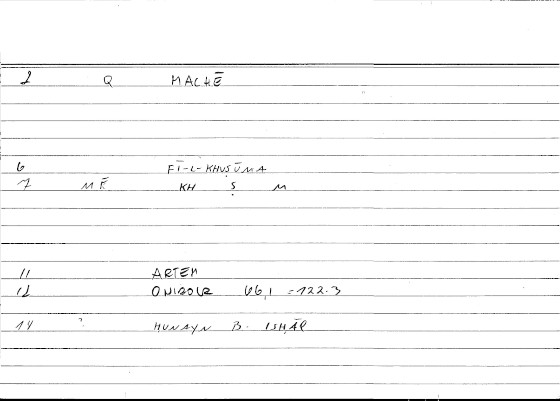 2 Q MACHĒ
6 FĪ-L-KHUṢŪMA
7 MĒ KH Ṣ M
11 ARTEM
12 ONIROCR 66,1 =122.3
14 ḤUNAYN B. ISḤĀQ